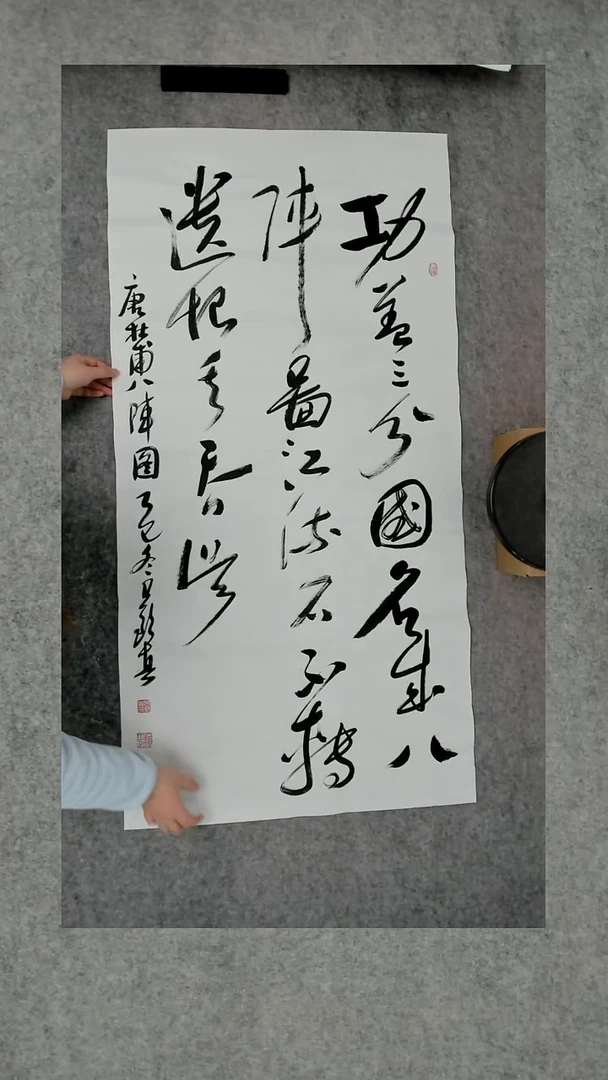 功盖三分國名成八
陣圖江流石不轉
遺恨失吞吳
唐杜甫八陣圖乙巳冬